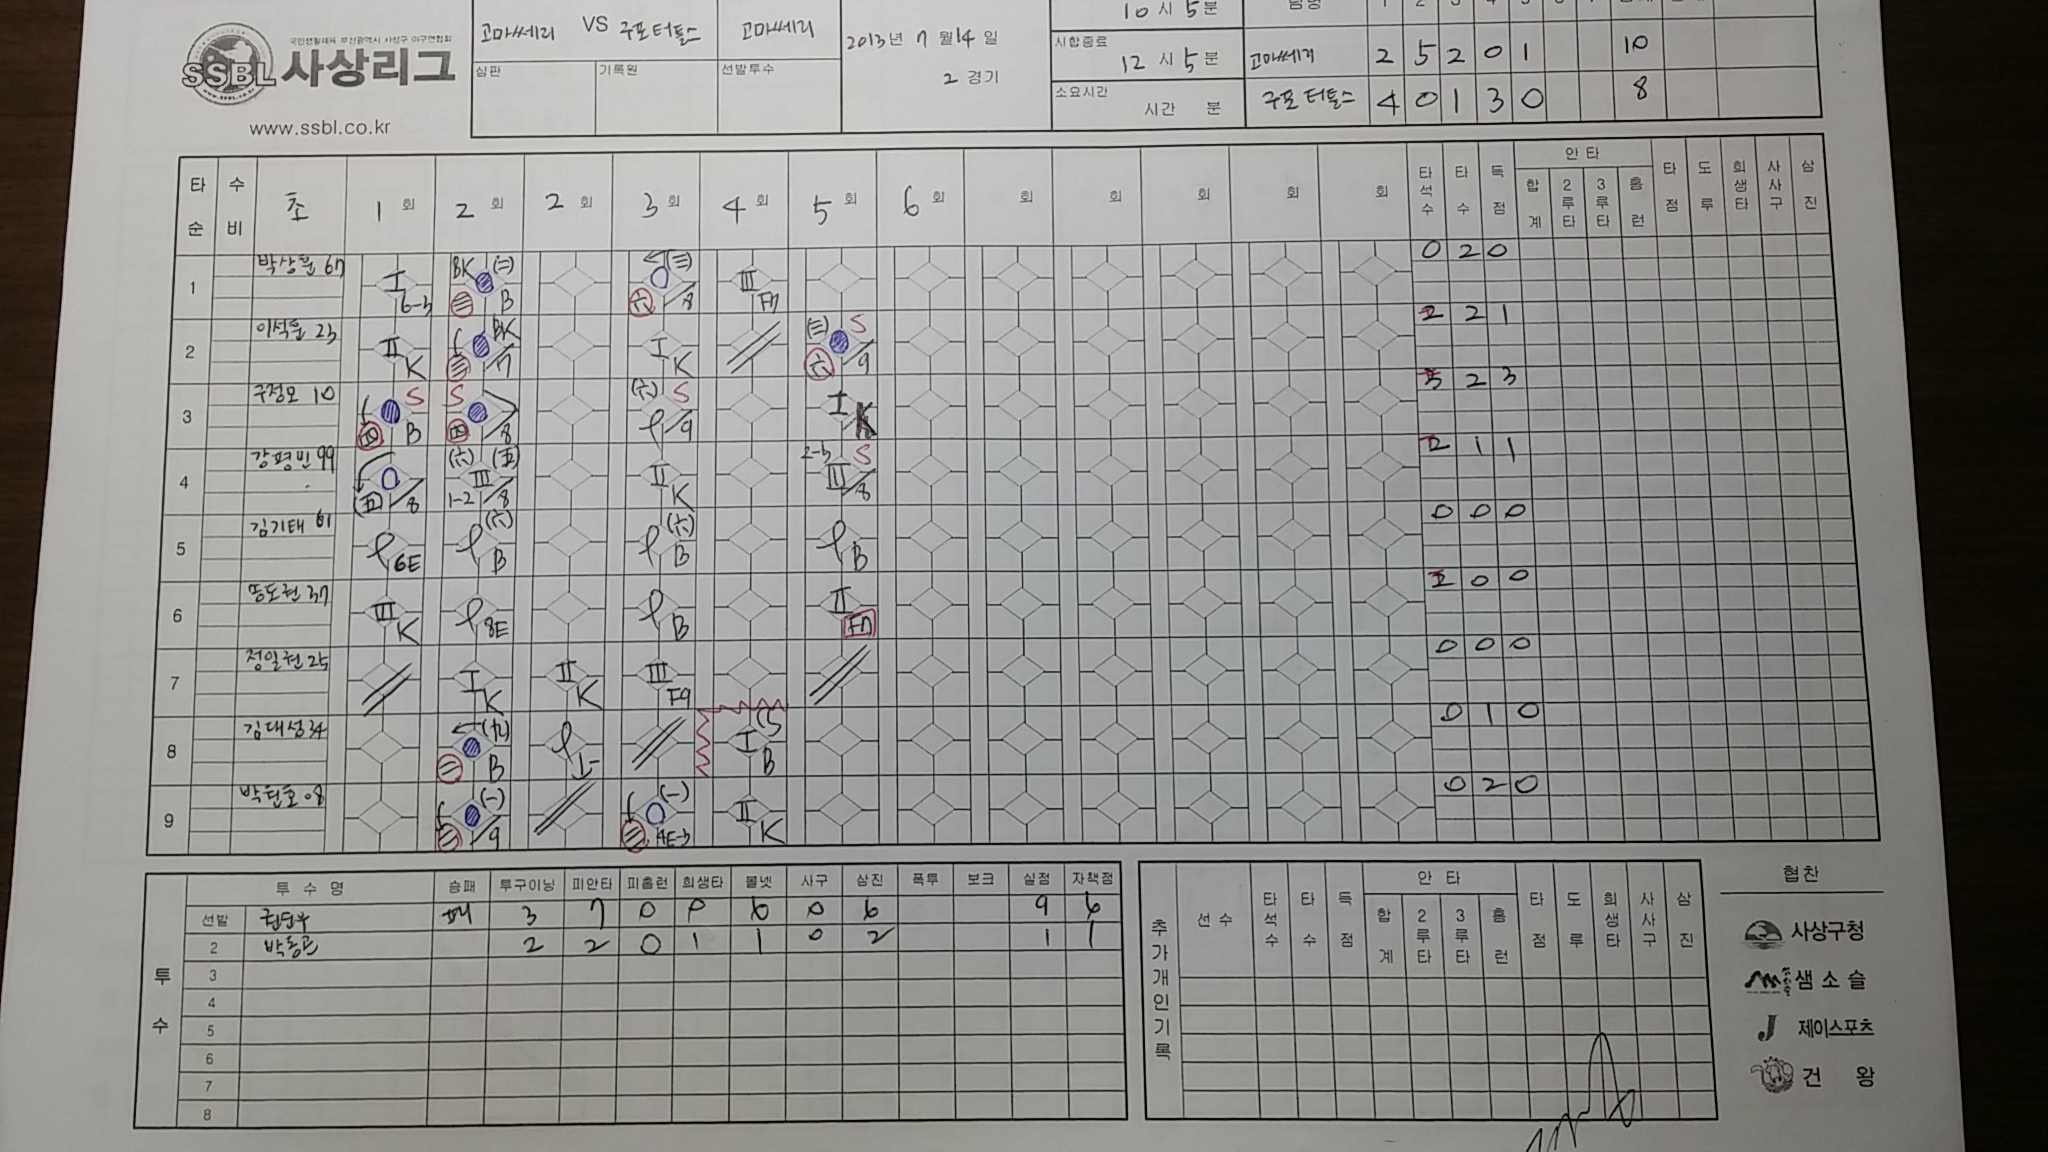 국민생활체육 부산광역시 사상구 야구연합회
SSBL 사상리그
www.ssbl.co.kr
고마쎄리 VS 구포터틀스
고마쎄리
심판
기록원
선발투수
2013년 7월 14일
2 경기
10시 5분
시합종료
12시 5분
소요시간
시간 분
고마쎄리 2 5 2 0 1 10
구포터틀스 4 0 1 3 0 8
타순 수비 초 1회 2회 2회 3회 4회 5회 6회 회 회 회 회 회 타석수 타수 득점 안타 합계 2루타 3루타 홈런 타점 도루 희생타 사사구 삼진
1 6-3 BK B 8 F7 0 2 0
2 이석훈 23 K BK 7 K S 9 2 2 1
3 구정모 10 S B S 8 S 9 K 3 2 3
4 강평민 99 8 1-2 8 K 2-3 S 8 2 1 1
5 김기태 61 6E B B B 0 0 0
6 37 K 8E B F7 0 0
7 정일현 25 K K F9 0 0 0
8 김대성 34 B B 0 1 0
9 9 4E-3 K 0 2 0
투수
투수명 승패 투구이닝 피안타 피홈런 희생타 볼넷 사구 삼진 폭투 보크 실점 자책점
선발 패 3 7 0 0 6 0 6 9 6
2 2 2 0 1 1 0 2 1 1
3
4
5
6
7
8
추가개인기록
선수 타석수 타수 득점 안타 합계 2루타 3루타 홈런 타점 도루 희생타 사사구 삼진
협찬
사상구청
샘소슬
제이스포츠
건왕